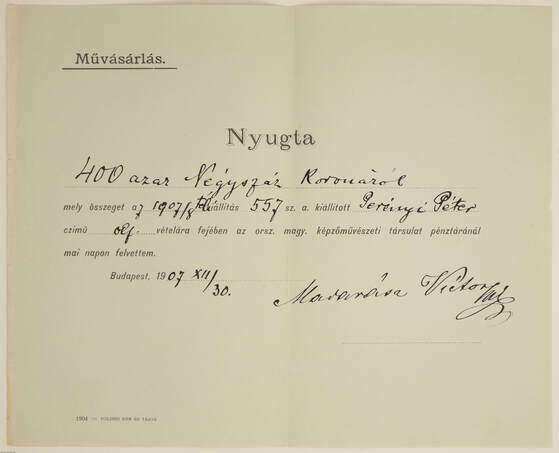 Művásárlás.
Nyugta
400 azaz Négyszáz Koronáról
mely összeget az 1907/8 kiállítás 557 sz. a. kiállított Perényi Péter
czimű olf. vételára fejében az orsz. magy. képzőművészeti társulat pénztáránál
mai napon felvettem.
Budapest, 1907 XII/30.
Madarász Victor
1904 —